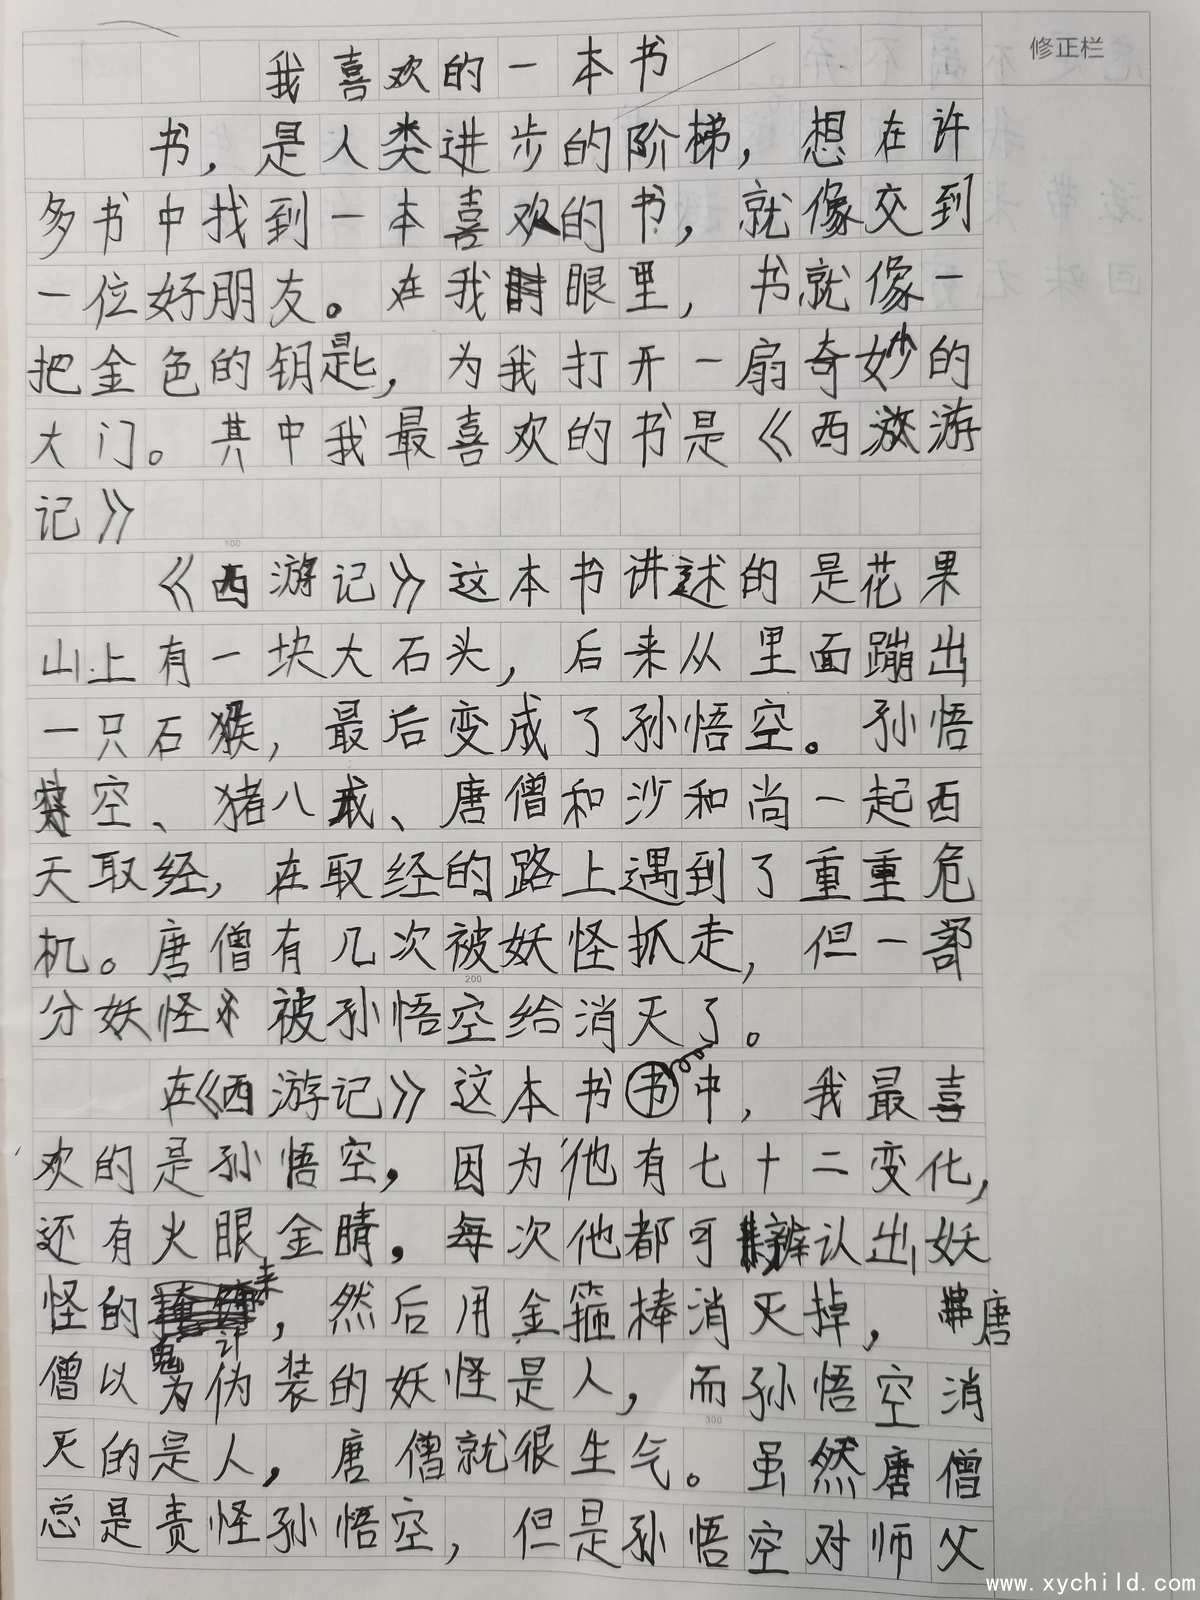 修正栏
我喜欢的一本书
书，是人类进步的阶梯，想在许
多书中找到一本喜欢的书，就像交到
一位好朋友。在我眼里，书就像一
把金色的钥匙，为我打开一扇奇妙的
大门。其中我最喜欢的书是《西游
记》
100
《西游记》这本书讲述的是花果
山上有一块大石头，后来从里面蹦出
一只石猴，最后变成了孙悟空。孙悟
空、猪八戒、唐僧和沙和尚一起西
天取经，在取经的路上遇到了重重危
机。唐僧有几次被妖怪抓走，但一部
200
分妖怪被孙悟空给消灭了。
在《西游记》这本书中，我最喜
欢的是孙悟空，因为他有七十二变化，
还有火眼金睛，每次他都可辨认出妖
怪的鬼计来，然后用金箍棒消灭掉，唐
僧以为伪装的妖怪是人，而孙悟空消
300
灭的是人，唐僧就很生气。虽然唐僧
总是责怪孙悟空，但是孙悟空对师父
www.xychild.com